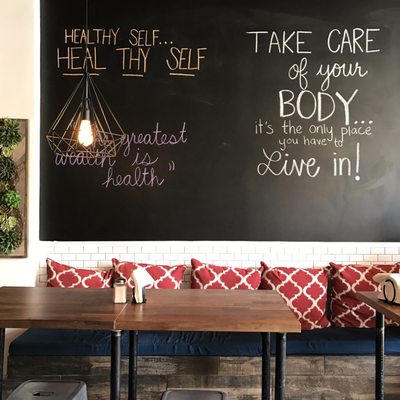 HEALTHY SELF...
HEAL THY SELF
greatest
wealth is
health"
TAKE CARE
of your
BODY...
it's the only place
you have to
Live in!